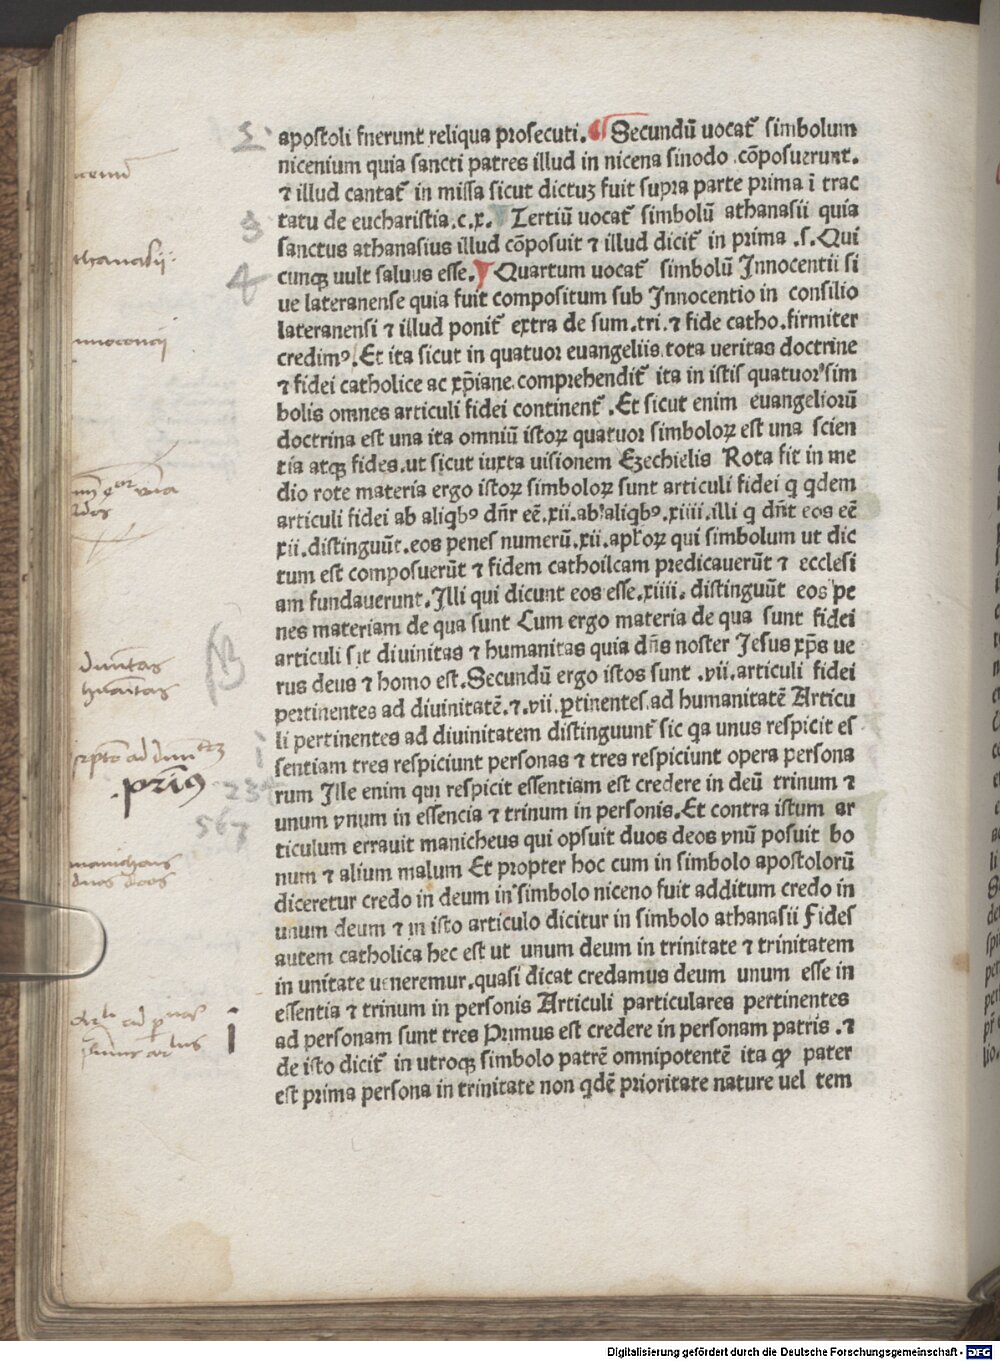 apostoli fnerunt reliqua prosecuti. ¶ Secundū uocat᷑ simbolum
nicenium quia sancti patres illud in nicena sinodo cōposuerunt.
⁊ illud cantat᷑ in missa sicut dictuꝫ fuit supra parte prima ī trac
tatu de eucharistia.c.x. ¶ Tertiū uocat᷑ simbolū athanasii quia
sanctus athanasius illud cōposuit ⁊ illud dicit᷑ in prima .s. Qui
cunqꝫ uult saluus esse. ¶ Quartum uocat᷑ simbolū Innocentii si
ue lateranense quia fuit compositum sub Innocentio in consilio
lateranensi ⁊ illud ponit᷑ extra de sum.tri.⁊ fide catho.firmiter
credimꝰ. Et ita sicut in quatuor euangeliis tota ueritas doctrine
⁊ fidei catholice ac xp̄iane comprehendit᷑ ita in istis quatuor sim
bolis omnes articuli fidei continent᷑ . Et sicut enim euangeliorū
doctrina est una ita omniū istoꝝ quatuor simboloꝝ est una scien
tia atqꝫ fides. ut sicut iuxta uisionem Ezechielis Rota fit in me
dio rote materia ergo istoꝝ simboloꝝ sunt articuli fidei q qdem
articuli fidei ab aliqbꝰ dn̄r eē.xii.ab aliqbꝰ.xiiii.illi q dn̄t eos eē
xii.distinguūt.eos penes numerū.xii.apl̓oꝝ qui simbolum ut dic
tum est composuerūt ⁊ fidem cathoilcam predicauerūt ⁊ ecclesi
am fundauerunt. Illi qui dicunt eos esse.xiiii. distinguūt eos pe
nes materiam de qua sunt Cum ergo materia de qua sunt fidei
articuli sit diuinitas ⁊ humanitas quia dn̄s noster Jesus xp̄s ue
rus deus ⁊ homo est. Secundū ergo istos sunt .vii.articuli fidei
pertinentes ad diuinitatē.⁊.vii.ꝑtinentes ad humanitatē Articu
li pertinentes ad diuinitatem distinguunt᷑ sic qa unus respicit es
sentiam tres respiciunt personas ⁊ tres respiciunt opera persona
rum Ille enim qui respicit essentiam est credere in deū trinum ⁊
unum vnum in essencia ⁊ trinum in personis. Et contra istum ar
ticulum errauit manicheus qui opsuit duos deos vnū posuit bo
num ⁊ alium malum Et propter hoc cum in simbolo apostolorū
diceretur credo in deum in simbolo niceno fuit additum credo in
unum deum ⁊ in isto articulo dicitur in simbolo athanasii Fides
autem catholica hec est ut unum deum in trinitate ⁊ trinitatem
in unitate ueneremur. quasi dicat credamus deum unum esse in
essentia ⁊ trinum in personis Articuli particulares pertinentes
ad personam sunt tres Primus est credere in personam patris .⁊
de isto dicit᷑ in utroqꝫ simbolo patrē omnipotentē ita ꝙ pater
est prima persona in trinitate non qdē prioritate nature uel tem
2
3
4
athanasii
diuinitas
humanitas
manicheus
duos deos
1
234
567
i
Digitalisierung gefördert durch die Deutsche Forschungsgemeinschaft - DFG